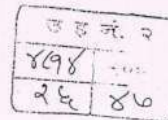 उ ह नं. २
४८१४
२६ ४७